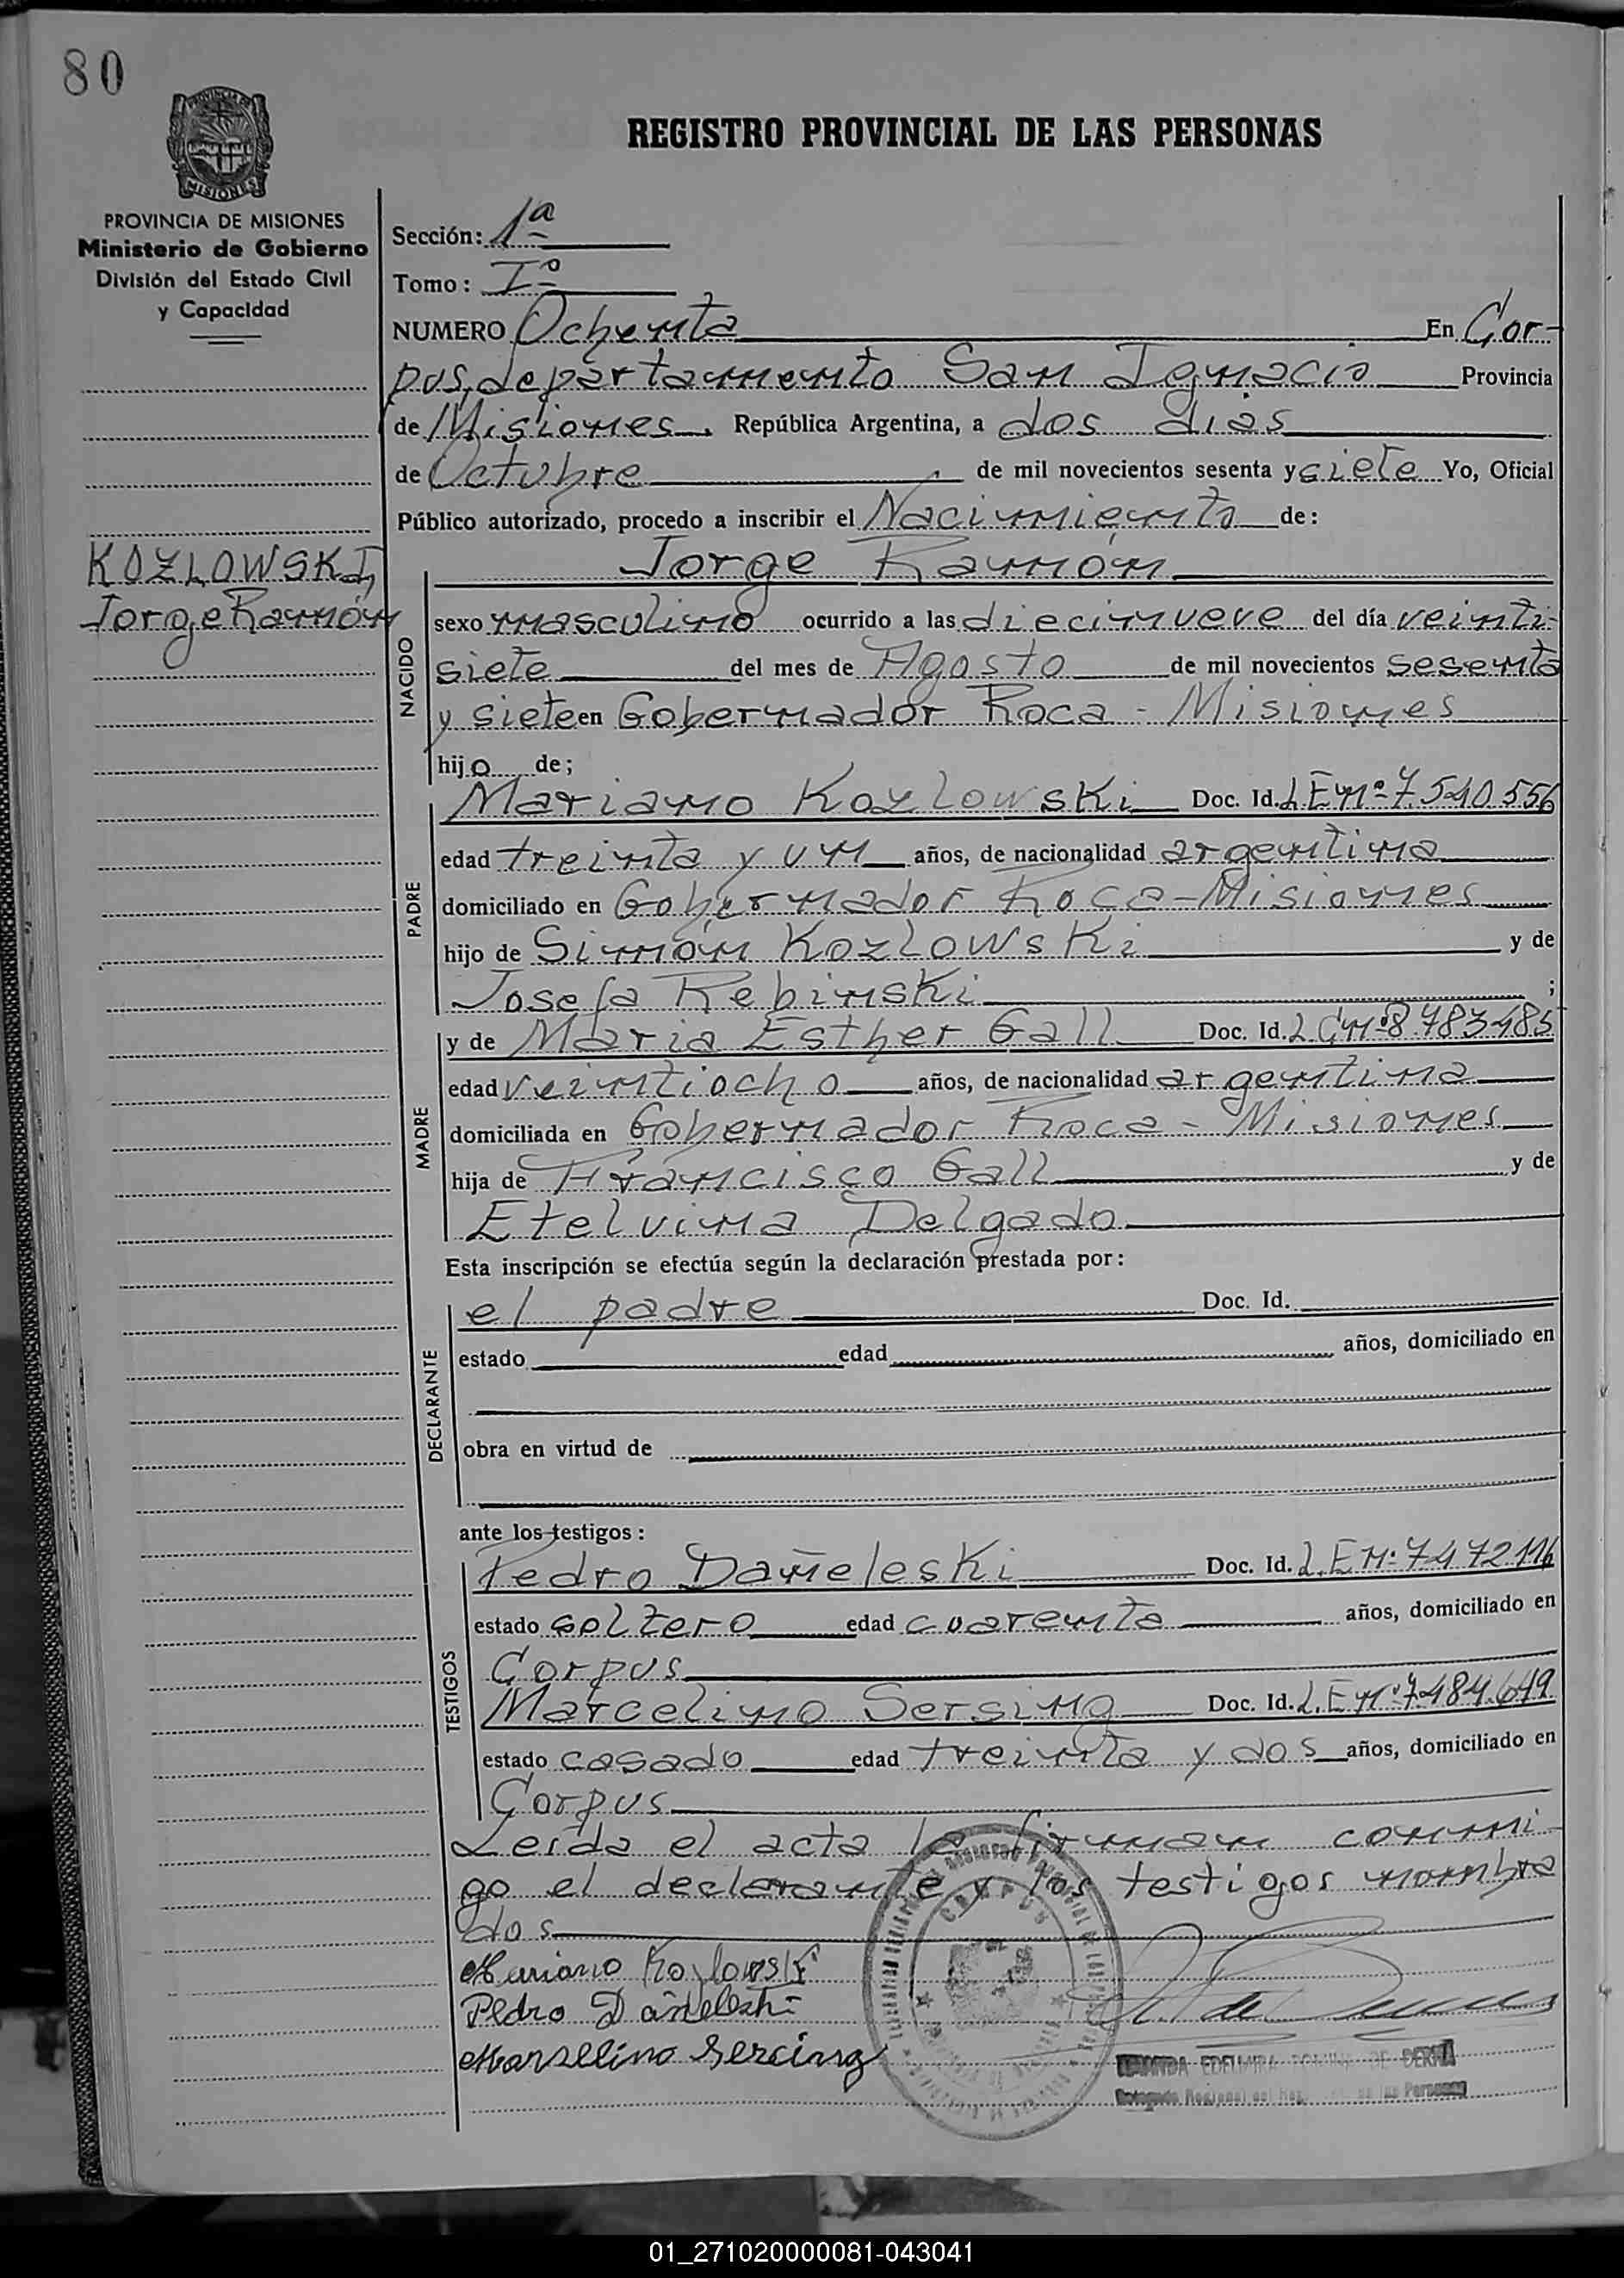 80
REGISTRO PROVINCIAL DE LAS PERSONAS
PROVINCIA DE MISIONES
Ministerio de Gobierno
División del Estado Civil
y Capacidad
Sección: 1ª
Tomo: Iº
NUMERO Ochenta En Cor-
pus, departamento San Ignacio Provincia
de Misiones. República Argentina, a dos dias
de Octubre de mil novecientos sesenta y siete Yo, Oficial
Público autorizado, procedo a inscribir el Nacimiento de:
KOZLOWSKI,
Jorge Ramón
NACIDO
Jorge Ramón
sexo masculino ocurrido a las diecinueve del día veinti-
siete del mes de Agosto de mil novecientos sesenta
y siete en Gobernador Roca - Misiones
hijo de;
PADRE
Mariano Kozlowski Doc. Id. L E nº 7.540.556
edad treinta y un años, de nacionalidad argentina
domiciliado en Gobernador Roca - Misiones
hijo de Simón Kozlowski y de
Josefa Rebinski ;
MADRE
y de Maria Esther Gall Doc. Id. L C nº 8.783.485
edad veintiocho años, de nacionalidad argentina
domiciliada en Gobernador Roca - Misiones
hija de Francisco Gall y de
Etelvina Delgado
Esta inscripción se efectúa según la declaración prestada por:
DECLARANTE
el padre Doc. Id.
estado edad años, domiciliado en
obra en virtud de
ante los testigos:
TESTIGOS
Pedro Dañeleski Doc. Id. L. E Nº 7472116
estado soltero edad cuarenta años, domiciliado en
Corpus
Marcelino Sersing Doc. Id. L. E nº 7.484.649
estado casado edad treinta y dos años, domiciliado en
Corpus
Leida el acta la firman conmi-
go el declarante y los testigos nombra
dos
Mariano Kozlowski
Pedro Dañeleski
Marselino Sercing
CORPUS
EDELMIRA DE
01_271020000081-043041